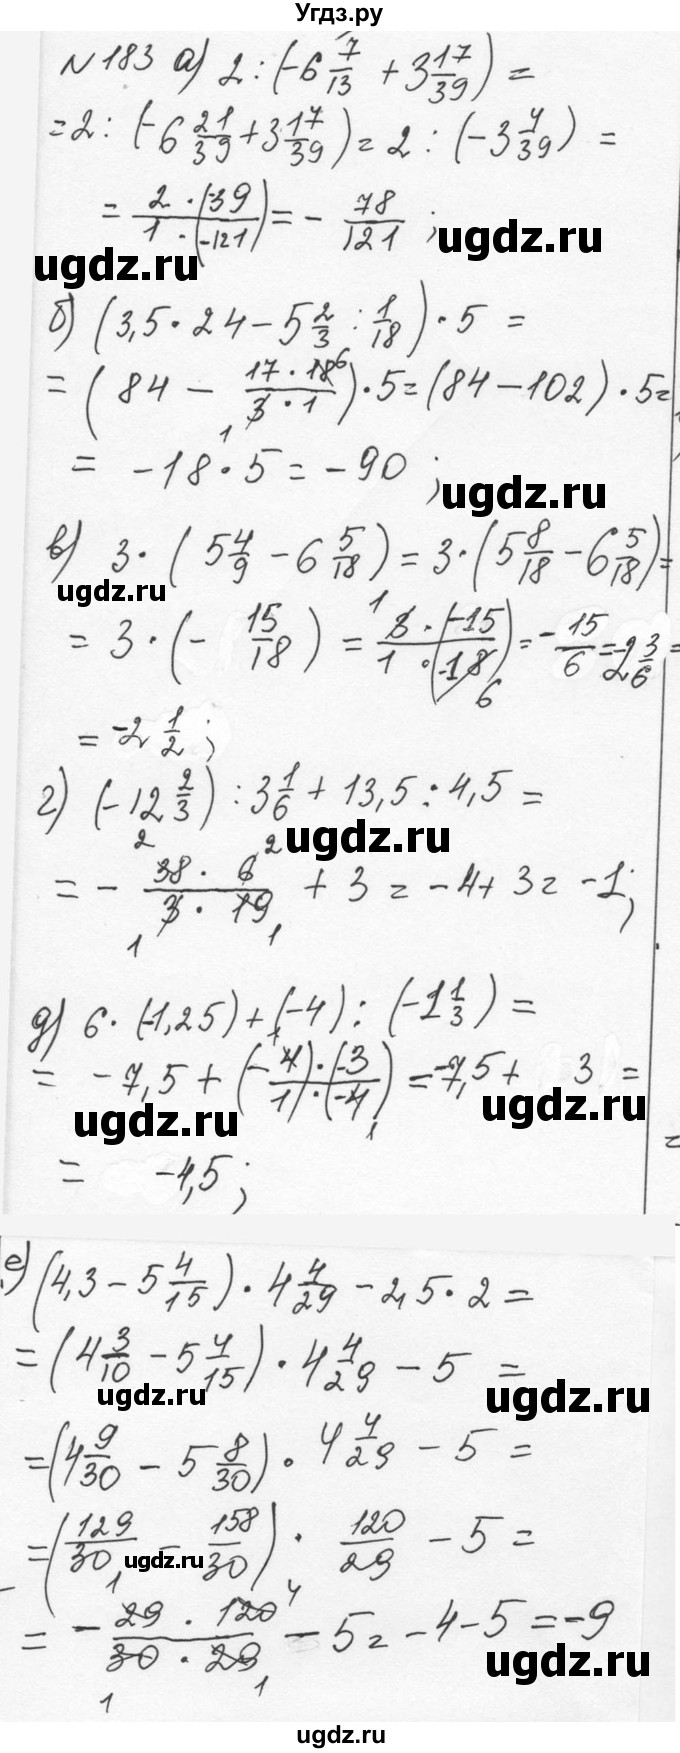 Угдз.ру
№183 а) 2 : (-6 7/13 + 3 17/39) =
= 2 : (-6 21/39 + 3 17/39) = 2 : (-3 4/39) =
= 2 · (-39)/1 · (-121) = - 78/121 ;
ugdz.ru
ugdz.ru
б) (3,5 · 24 - 5 2/3 : 1/18) · 5 =
= (84 - 17 · 18 6/3 · 1 1) · 5 = (84 - 102) · 5 =
= -18 · 5 = -90 ;
ugdz.ru
в) 3 · (5 4/9 - 6 5/18) = 3 · (5 8/18 - 6 5/18) =
ugdz.ru
= 3 · (- 15/18) = 1 3 · (-15)/1 · (-18) 6 = - 15/6 = -2 3/6 =
= -2 1/2 ;
г) (-12 2/3) : 3 1/6 + 13,5 : 4,5 =
ugdz.ru
= - 2 38 · 6 2/1 3 · 19 1 + 3 = -4 + 3 = -1;
д) 6 · (-1,25) + (-4) : (-1 1/3) =
= -7,5 + (-4) · (-3)/1 · (-4) 1 = -7,5 + 3 =
ugdz.ru
ugdz.ru
= -4,5 ;
е) (4,3 - 5 4/15) · 4 4/29 - 2,5 · 2 =
= (4 3/10 - 5 4/15) · 4 4/29 - 5 =
ugdz.ru
ugdz.ru
= (4 9/30 - 5 8/30) · 4 4/29 - 5 =
= (129/30 - 158/30) · 120/29 - 5 =
ugdz.ru
= - 1 29 · 120 4/1 30 · 29 1 - 5 = -4 - 5 = -9
ugdz.ru
ugdz.ru